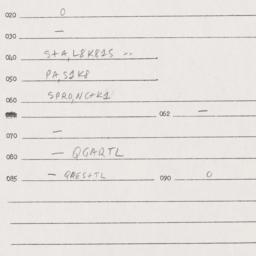 020 0
030 —
040 S+A,L8K815 --
050 PA,S1K8
060 SPRO,NC+K1
062 —
070 —
080 — QGARTL
085 — QAES+TL 090 0